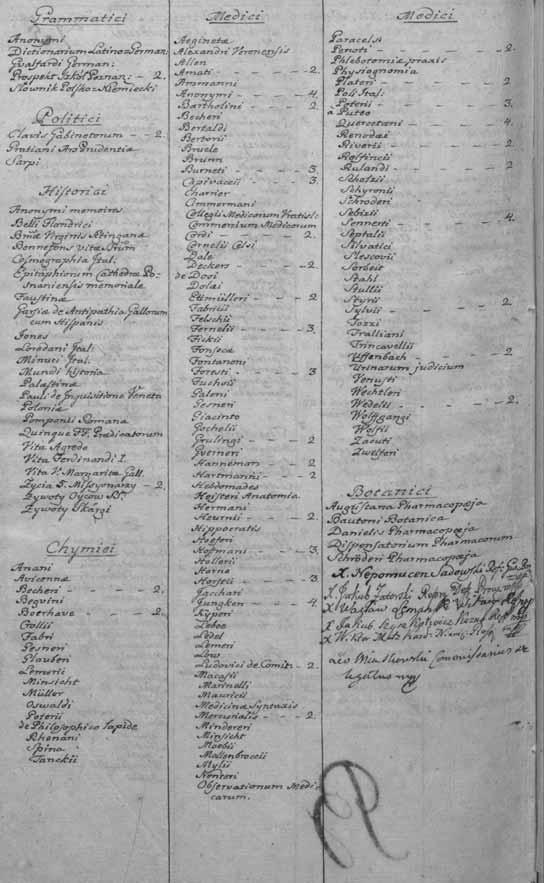 Grammatici
Anonymi
Dictionarium Latino=German:
Gvalfardi German:
Prospekt Szkół Poznan: - 2.
Słownik Polsko=Niemiecki
Politici
Clavis Gabinetorum - - 2.
Gratiani An Prudentia
Sarpi
Historici
Anonymi memoires
Belli Flandrici
Btæ Virginis Œtingana
Bonnefons vita Stum
Cosmographia Ital:
Epitaphiorum Cathedræ Po=
snaniensis memoriale
Faustinæ
Garsiæ de Antipathia Gallorum
cum Hispanis
Jones
Loredani Ital:
Minuci Ital:
Mundi Historia
Palæstinæ
Pauli de Inquisitione Veneta
Polonia
Pomponii Romana
Quinque FF. Prædicatorum
Vita Agreda
Vita Ferdinandi I.
Vita V. Margaritæ Gall.
Życia S. Missyonarzy - 2.
Żywoty Oyców SS.
Żywoty Skargi
Chymici
Anani
Avicennæ
Becheri - - - - 2.
Beguini
Boerhave - - - - 2.
Crollii
Fabri
Gesneri
Glauberi
Lemerii
Minsicht
Müller
Oswaldi
Poterii
de Philosophico Lapide
Rhenani
Spina
Tanckii
Medici
Aeginetæ
Alexandri Veronensis
Allen
Amati - - - - - - 2.
Ammanni
Anonymi - - - - - 4.
Bartholini - - - - 2
Becheri
Bertaldi
Bertorii
Bruele
Brunn
Burneti - - - - - 3.
Capivaccii - - - - 3.
Charrier
Cimmermani
Collegii Medicorum Vratisl:
Commercium Medicorum
Cordi - - - - - - 2.
Cornelii Celsi
Dale
Deckers - - - - - 2.
de Dooi
Dolæi
Etmülleri - - - - 2
Fabricii
Felschii
Fernelii - - - - - 3.
Fickti
Fonsecæ
Fontanoni
Foresti - - - - - 3
Fuchsii
Galeni
Gesneri
Giacinto
Gochelii
Grulingi - - - - 2
Gverneri
Hanneman - - - - 2
Hartmanni - - - - 2
Hebdomades
Heisteri Anatomia
Hermani
Heurnii - - - - - 2.
Hippocratis
Hoeferi
Hofmani - - - - - 3.
Hollerii
Horne
Horstii - - - - - 3.
Jacchari
Jungken - - - - - 4.
Kyperi
Leboe
Ledel
Lemeri
Low
Ludovici de Comit: - 2.
Macasii
Marinelli
Mauricii
Medicinæ Syntaxis
Mercurialis - - - - 2.
Mindereri
Minsicht
Moebii
Mollenbroccii
Mylii
Nenteri
Observationum Medi=
carum.
Medici
Paracelsi
Penoti - - - - - 2.
Phlebotomiæ praxis
Physiognomia
Plateri - - - - - 2
Poli Ital:
Poterii - - - - - 3.
à Puteo
Quercetani - - - - 4
Renodæi
Riverii - - - - - 2.
Rolfincii
Rulandi - - - - - 2
Scholzii
Schyronii
Schroderi
Sebizii
Sennerti - - - - - 4.
Septalii
Silvatici
Slescovii
Sorbeit
Stahl
Stultii
Styrii
Sylvii - - - - - 2
Tozzi
Tralliani
Trincavellii
Uffenbach - - - - 2
Urinarum judicium
Venusti
Wechtleri
Wedelii - - - - - 2.
Wolffgangi
Wolfii
Zacuti
Zwelferi
Botanici
Augustana Pharmacopœja
Bautoni Botanica
Danielis Pharmacopœja
Dispensatorium Pharmacorum
Schröderi Pharmacopœja
X. Nepomucen Sadowski
X. Jakub
X.
X Jakub
X.
Commissarius